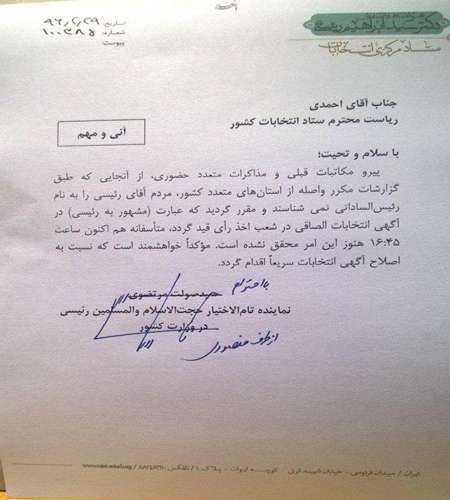 دکتر سید ابراهیم رئیسی
ستاد مرکزی انتخابات
تاریخ:
شماره:
پیوست
آنی و مهم
جناب آقای احمدی
ریاست محترم ستاد انتخابات کشور
با سلام و تحیت؛
پیرو مکاتبات قبلی و مذاکرات متعدد حضوری، از آنجایی که طبق
گزارشات مکرر واصله از استان‌های متعدد کشور، مردم آقای رئیسی را به نام
رئیس‌الساداتی نمی شناسند و مقرر گردید که عبارت (مشهور به رئیسی) در
آگهی انتخابات الصاقی در شعب اخذ رأی قید گردد، متأسفانه هم اکنون ساعت
۱۶:۴۵ هنوز این امر محقق نشده است. مؤکداً خواهشمند است که نسبت به
اصلاح آگهی انتخابات سریعاً اقدام گردد.
با احترام
سیدصولت مرتضوی
نماینده تام‌الاختیار حجت‌الاسلام والمسلمین رئیسی
در وزارت کشور
از طرف منصوری